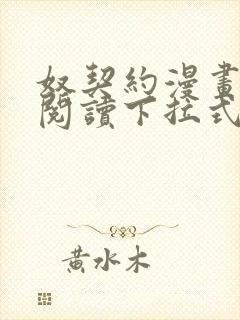 奴契約漫畫
閱讀下拉式
黃水木